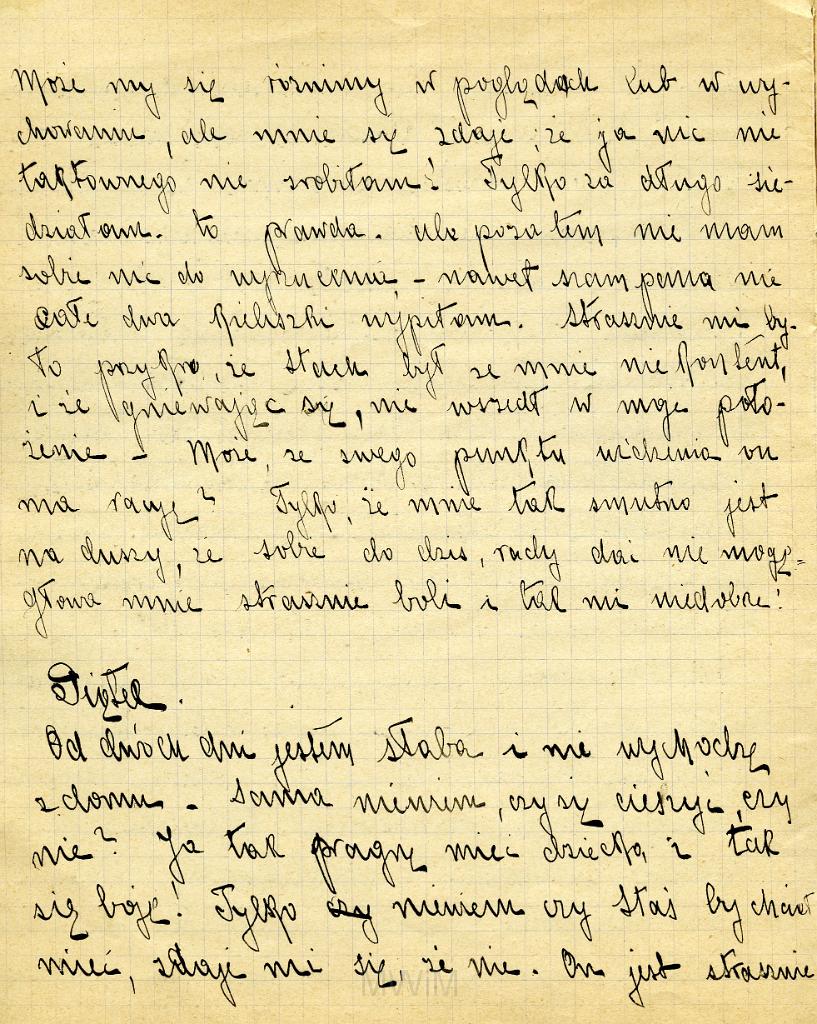 Może my się różnimy w poglądach lub w wy-
chowaniu, ale mnie się zdaje, że ja nic nie
taktownego nie zrobiłam! Tylko za długo sie-
działam. to prawda. ale poza tem nie mam
sobie nic do wyrzucenia, - nawet szampana nie
całe dwa kieliszki wypiłam. Strasznie mi by-
ło przykro, że Stach był ze mnie nie kontent,
i że gniewając się, nie wszedł w moje poło-
żenie - Może, ze swego punktu widzenia on
ma rację? Tylko, że mnie tak smutno jest
na duszy, że sobie do dziś, rady dać nie mogę -
Głowa mnie strasznie boli i tak mi niedobrze!
Piątek.
Od dwóch dni jestem słaba i nie wychodzę
z domu - Sama niewiem, czy się cieszyć, czy
nie? Ja tak pragnę mieć dziecko, i tak
się boję! Tylko czy niewiem czy Staś by chciał
mieć, zdaje mi się, że nie. On jest strasznie
MWIM